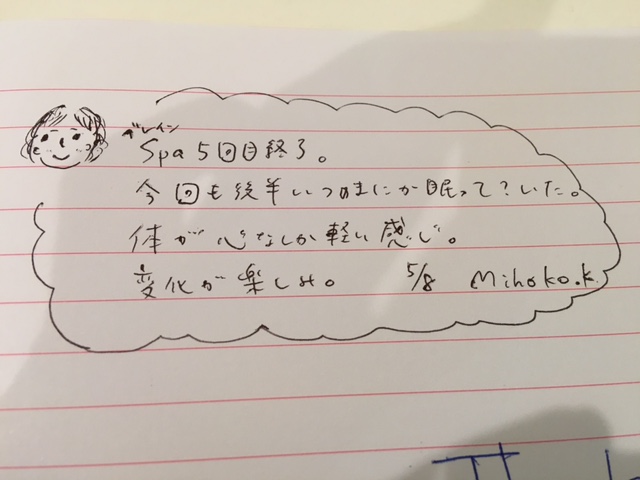 ブレイン
Spa 5回目終了。
今回も後半いつのまにか眠って?いた。
体が心なしか軽い感じ。
変化が楽しみ。 5/8 Mihoko.K.